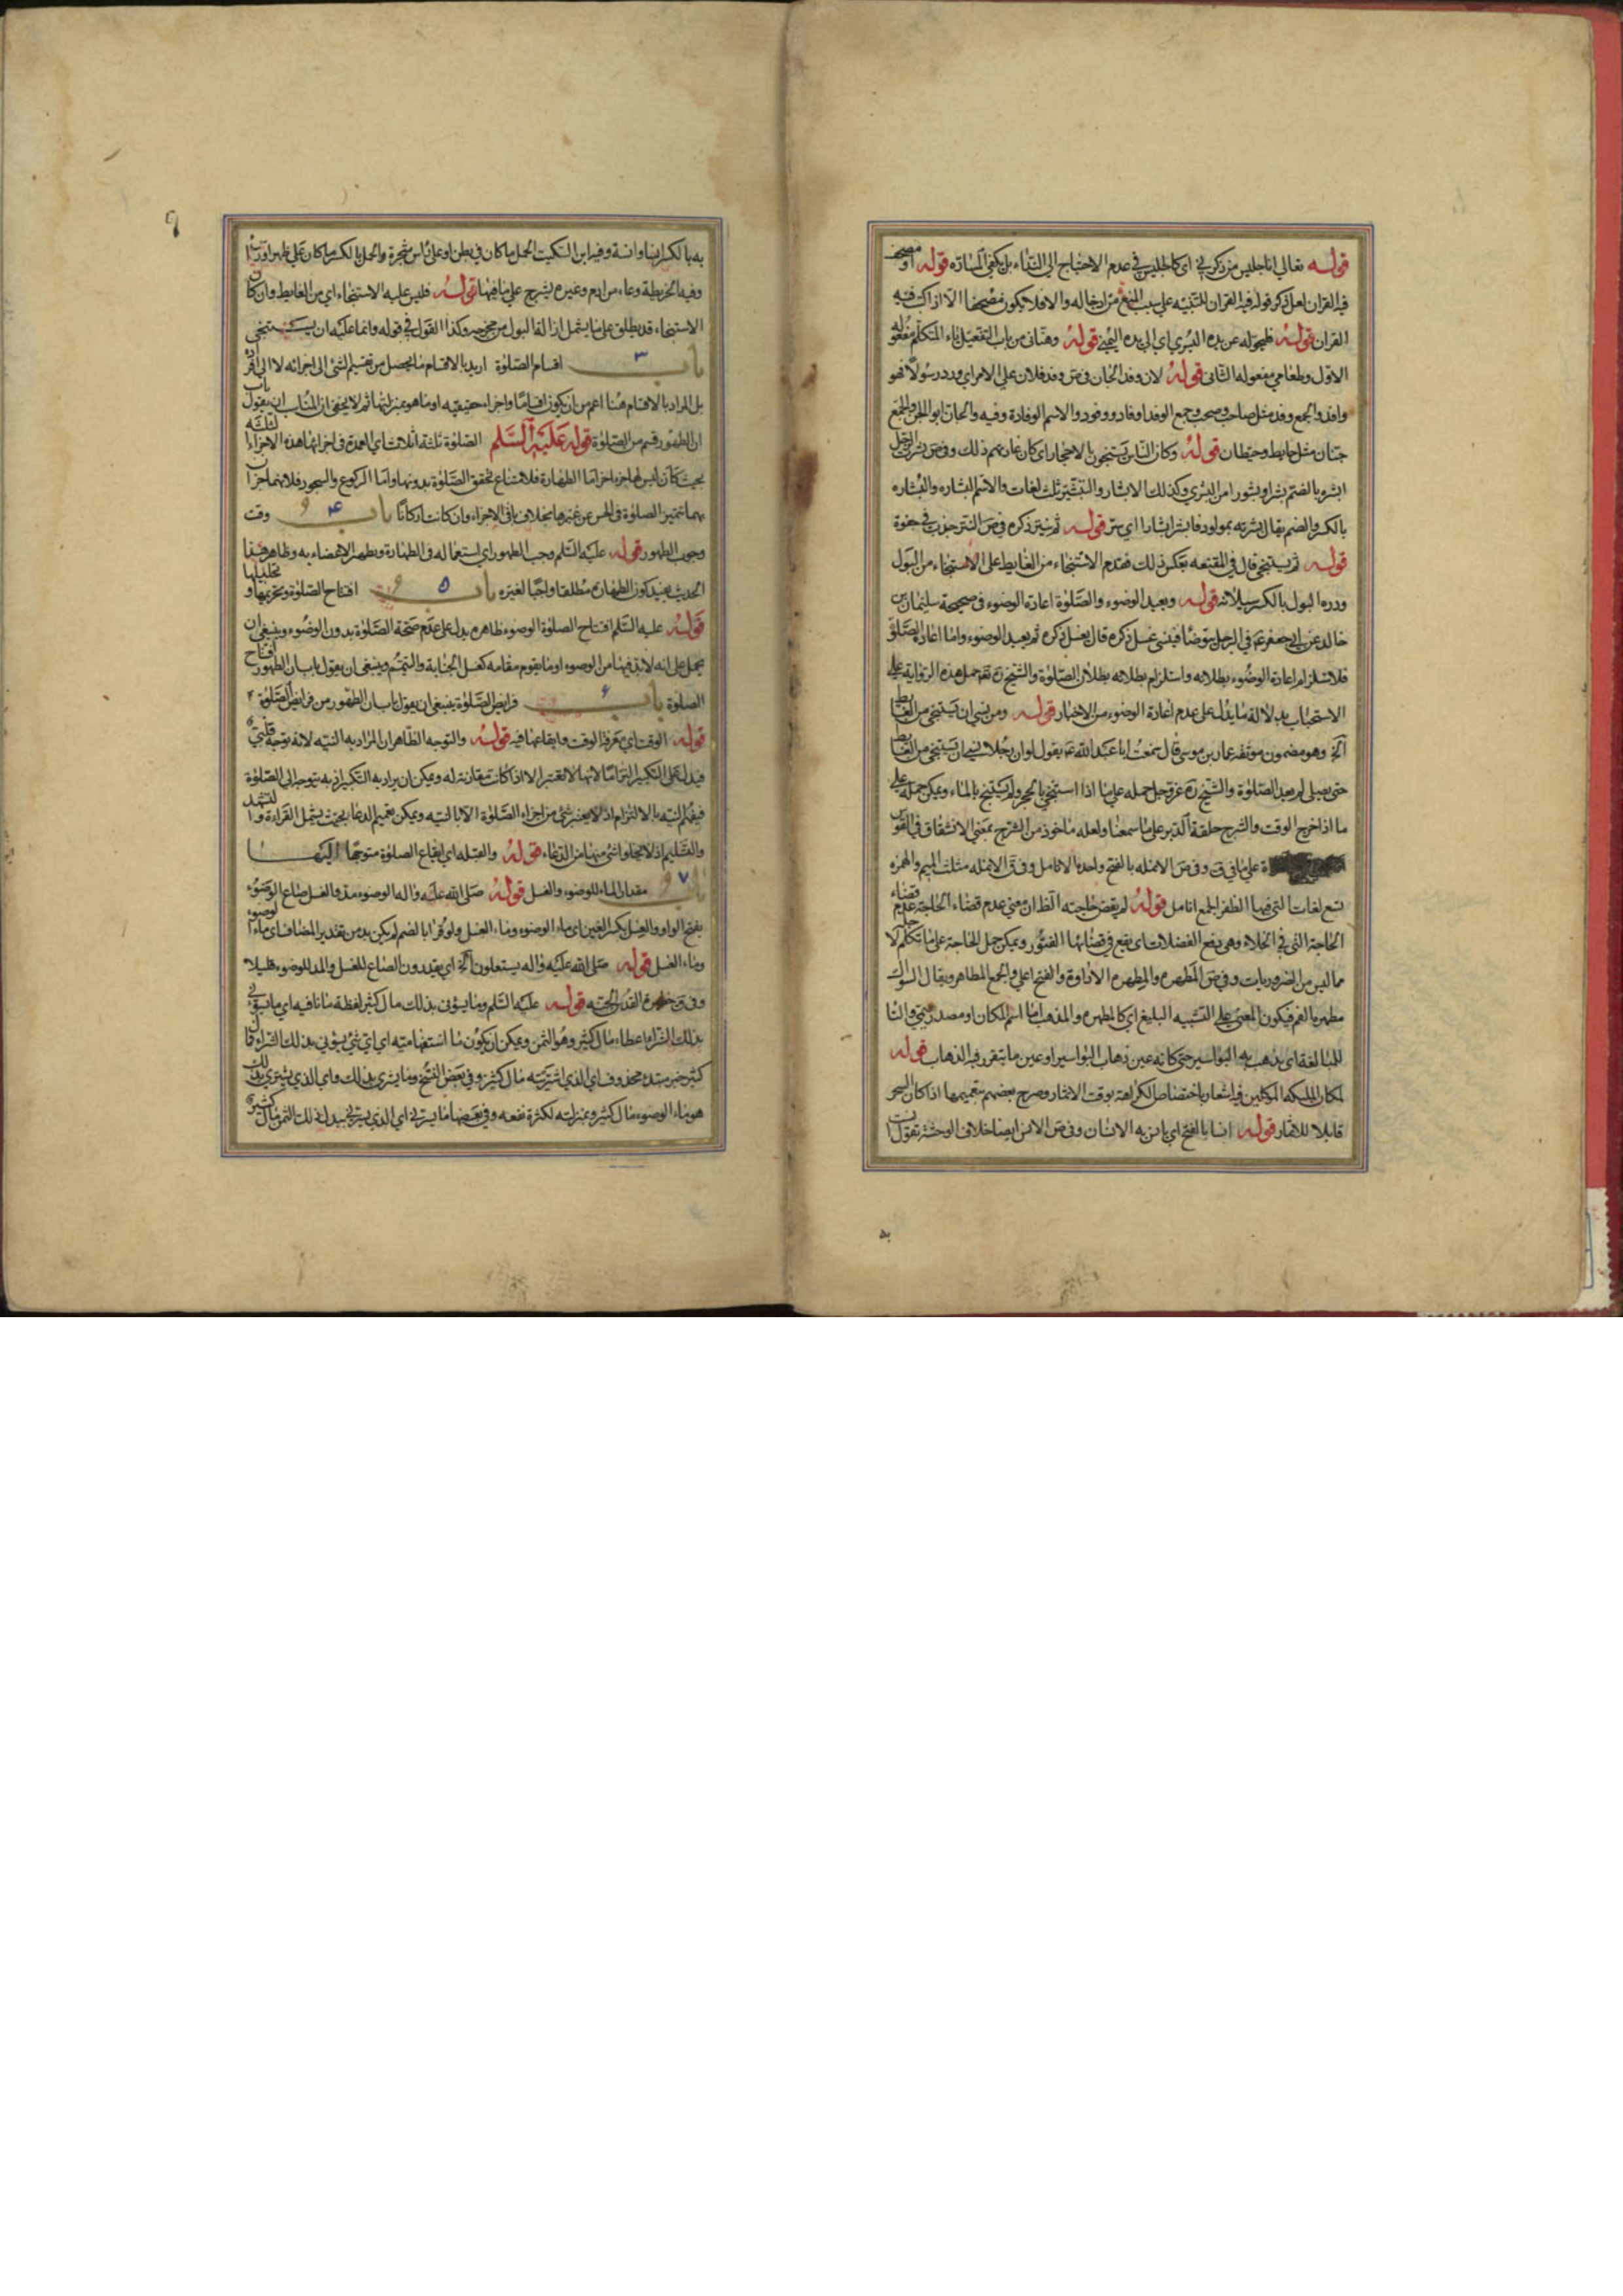 قوله تعالى انا جليس من ذكرني اى كالجليس في عدم الاحتياج الى النداء بل يكفى المسارّه قوله او مصحف
فيه القران لعل ذكر قوله فيه القران للتنبيه على سبب المنع من ادخاله والا فلا يكون مصحفا الا اذا كتب فيه
القران قوله فليحوله عن يده اليسرى اى الى يده اليمنى قوله وهنّانى من باب التفعيل ياء المتكلم مفعوله
الاول وطعامى مفعوله الثانى قوله لان وفد الجان فى ص وفد فلان على الامير اى ورد رسولا فهو
وافد والجمع وفد مثل صاحب وصحب وجمع الوفد اوفاد ووفود والاسم الوفادة وفيه والجان ابو الجن والجمع
جنان مثل حايط وحيطان قوله وكان الناس يستنجون بالاحجار اى كان عادتهم ذلك وفى ص بشرت الرجل
ابشره بالضم بشرا وبشورا من البشرى وكذلك الابشار والتبشير ثلث لغات والاسم البشاره والبشاره
بالكسر والضم يقال بشرته بمولود فابشر ابشارا اى سر قوله ثم ينتر ذكره فى ص النتر جذب فى جفوة
قوله ثم يستنجى قال في المقنعه بعكس ذلك فقدم الاستنجاء من الغايط على الاستنجاء من البول
ودره البول بالكسر سيلانه قوله ويعيد الوضوء والصلوة اعادة الوضوء فى صحيحة سليمان بن
خالد عن ابى جعفر ع في الرجل يتوضا فينسى غسل ذكره قال يغسل ذكره ثم يعيد الوضوء واما اعادة الصلوة
فلاستلزام اعادة الوضوء بطلانه واستلزام بطلانه بطلان الصلوة والشيخ ره حمل هذه الرواية على
الاستحباب بدلالة ما يدل على عدم اعادة الوضوء من الاخبار قوله ومن نسى ان يستنجى من الغايط
آلخ وهو مضمون موثقة عمار بن موسى قال سمعت ابا عبد الله ع يقول لو ان رجلا نسى ان يستنجى من الغايط
حتى يصلى لم يعد الصلوة والشيخ ره حمله على ما اذا استنجى بالحجر ولم يستنج بالماء ويمكن حمله على
ما اذا خرج الوقت والشرج حلقة الدبر على ما سمعنا ولعله ماخوذ من الشرج بمعنى الانشقاق فى القوس
على ما في ق وفى ص الانمله بالفتح واحدة الانامل وفى ق الانمله مثلث الميم والهمزه
تسع لغات التى فيها الظفر الجمع انامل قوله لم يقض حاجته الظ ان معنى عدم قضاء الحاجة عدم قضاء
الحاجة التى في الخلاء وهى دفع الفضلات اى يقع فى قضائها الفتور ويمكن حمل الحاجة على ما تكلم لاجله
مما ليس من الضروريات وفى ص المَطهره والمِطهره الاداوة والفتح اعلى والجمع المطاهر ويقال السواك
مطهره للفم فيكون المعنى على التشبيه البليغ اى كالمطهره والمذهب اما اسم المكان او مصدر ميمى والتا
للمبالغة اى يذهب به البواسير حتى كانه عين ذهاب البواسير او عين ما يتقرر فيه الذهاب قوله
لمكان الملئكه الموكلين فيه اشعار باختصاص الكراهة بوقت الاثمار وصرح بعضهم بتعميمها اذا كان الشجر
قابلا للاثمار قوله انسا بالفتح اى يانس به الانسان وفى ص الانس ايضا خلاف الوحشة تقول انست
به بالكسر انسا وانسة وفيه ابن السكيت الحمل ما كان في بطن او على راس شجرة والحمل بالكسر ما كان على ظهر او راس
وفيه الخريطة وعاء من ادم وغيره يشرج على ما فيها قوله فليس عليه الاستنجاء اى من الغايط وان كان
الاستنجاء قد يطلق على ما يشمل ازالة البول من مخرجه وكذا القول في قوله وانما عليه ان يستنجى
باب ٣ اقسام الصلوة اريد بالاقسام ما يحصل من تقسيم الشئ الى اجزائه لا الى افراده
بل المراد بالاقسام هنا اعم من ان يكون اقساما واجزاء حقيقيه او ما هو بمنزلتها ثم لا يخفى ان المناسب ان يقول باب
ان الطهور قسم من الصلوة قوله عليه السلم الصلوة ثلثة اثلاث اى العمدة فى اجزائها هذه الاجزاء الثلثة
بحيث كان ليس لها جزء اخر اما الطهارة فلامتناع تحقق الصلوة بدونها واما الركوع والسجود فلانهما جزآن
بهما تتميز الصلوة فى الحس عن غيرها بخلاف باقى الاجزاء وان كانت اركانا باب ۴ وقت
وجوب الطهور قوله عليه السلم وجب الطهور اى استعماله فى الطهارة وتطهير الاعضاء به وظاهر هذا
الحديث يفيد كون الطهارة مطلقا واجبا لغيره باب ۵ افتتاح الصلوة وتحريمها و تحليلها
قوله عليه السلم افتتاح الصلوة الوضوء ظاهره يدل على عدم صحة الصلوة بدون الوضوء وينبغى ان
يحمل على انه لا بد فيها من الوضوء او ما يقوم مقامه كغسل الجنابة والتيمم وينبغى ان يقول باب ان الطهور افتتاح
الصلوة باب ۶ فرايض الصلوة ينبغى ان يقول باب ان الطهور من فرايض الصلوة
قوله الوقت اى معرفة الوقت وايقاعها فيه قوله والتوجه الظاهر ان المراد به النيه لانه توجه قلبى
فيدل على التكبير التزاما لانها لا تعتبر الا اذا كانت مقارنة له ويمكن ان يراد به التكبير اذ به يتوجه الى الصلوة
فيفهم النيه بالالتزام اذ لا يعتبر شئ من اجزاء الصلوة الا بالنيه ويمكن تعميم الدعا بحيث يشمل القراءة والتشهد
والتسليم اذ لا يخلو شئ منها من الدعاء قوله والقبله اى ايقاع الصلوة متوجها اليها
باب ٧ مقدار الماء للوضوء والغسل قوله صلى الله عليه واله الوضوء مد والغسل صاع الوضوء
بفتح الواو والغسل بكسر الغين اى ماء الوضوء وماء الغسل ولو قرا بالضم لم يكن بد من تقدير المضاف اى ماء الوضوء
وماء الغسل قوله صلى الله عليه واله يستقلون آلخ اى يعدون الصاع للغسل والمد للوضوء قليلا
وفى حظيرة القدس الجنه قوله عليه السلم وما يؤتى بذلك مال كثير لفظة ما نافيه اى ما يؤتى
بذلك الشراء اعطاء مال كثير وهو الثمن ويمكن ان يكون ما استفهاميه اى اى شئ يؤتى بذلك الشراء قال
كثير خبر مبتدء محذوف اى الذى اشتريته مال كثير وفى بعض النسخ وما يشرى بذلك اى الذى يشترى بذلك
هو ماء الوضوء مال كثير وبمنزلته لكثرة نفعه وفى بعضها ما يسرنى اى الذى يسرنى ببدل ذلك الثمن مال كثير